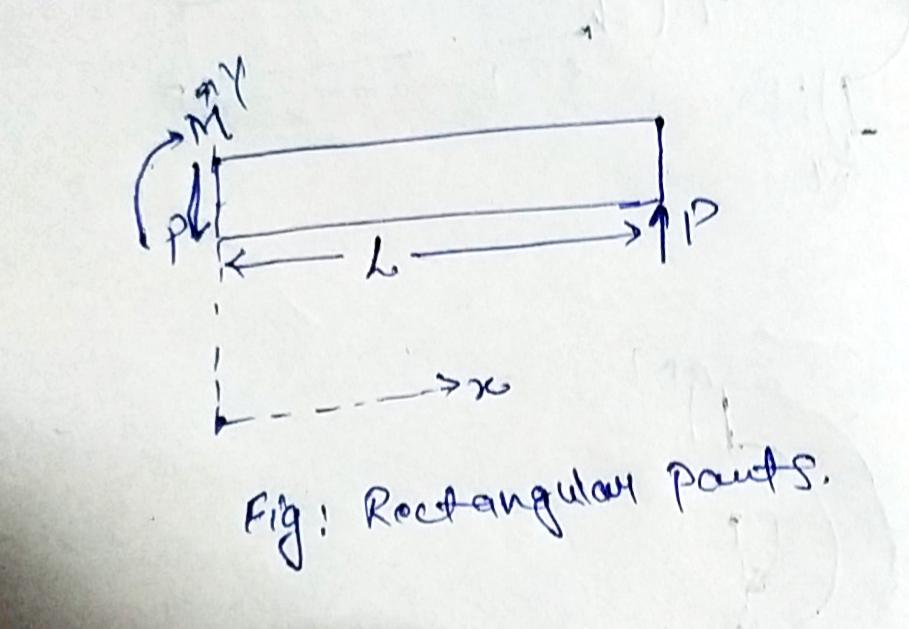 Y
M
P
L
P
x
Fig: Rectangular parts.